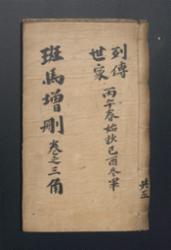 列傳
世家
丙午春始役己酉冬畢
班馬增刪 卷之三 角
共五